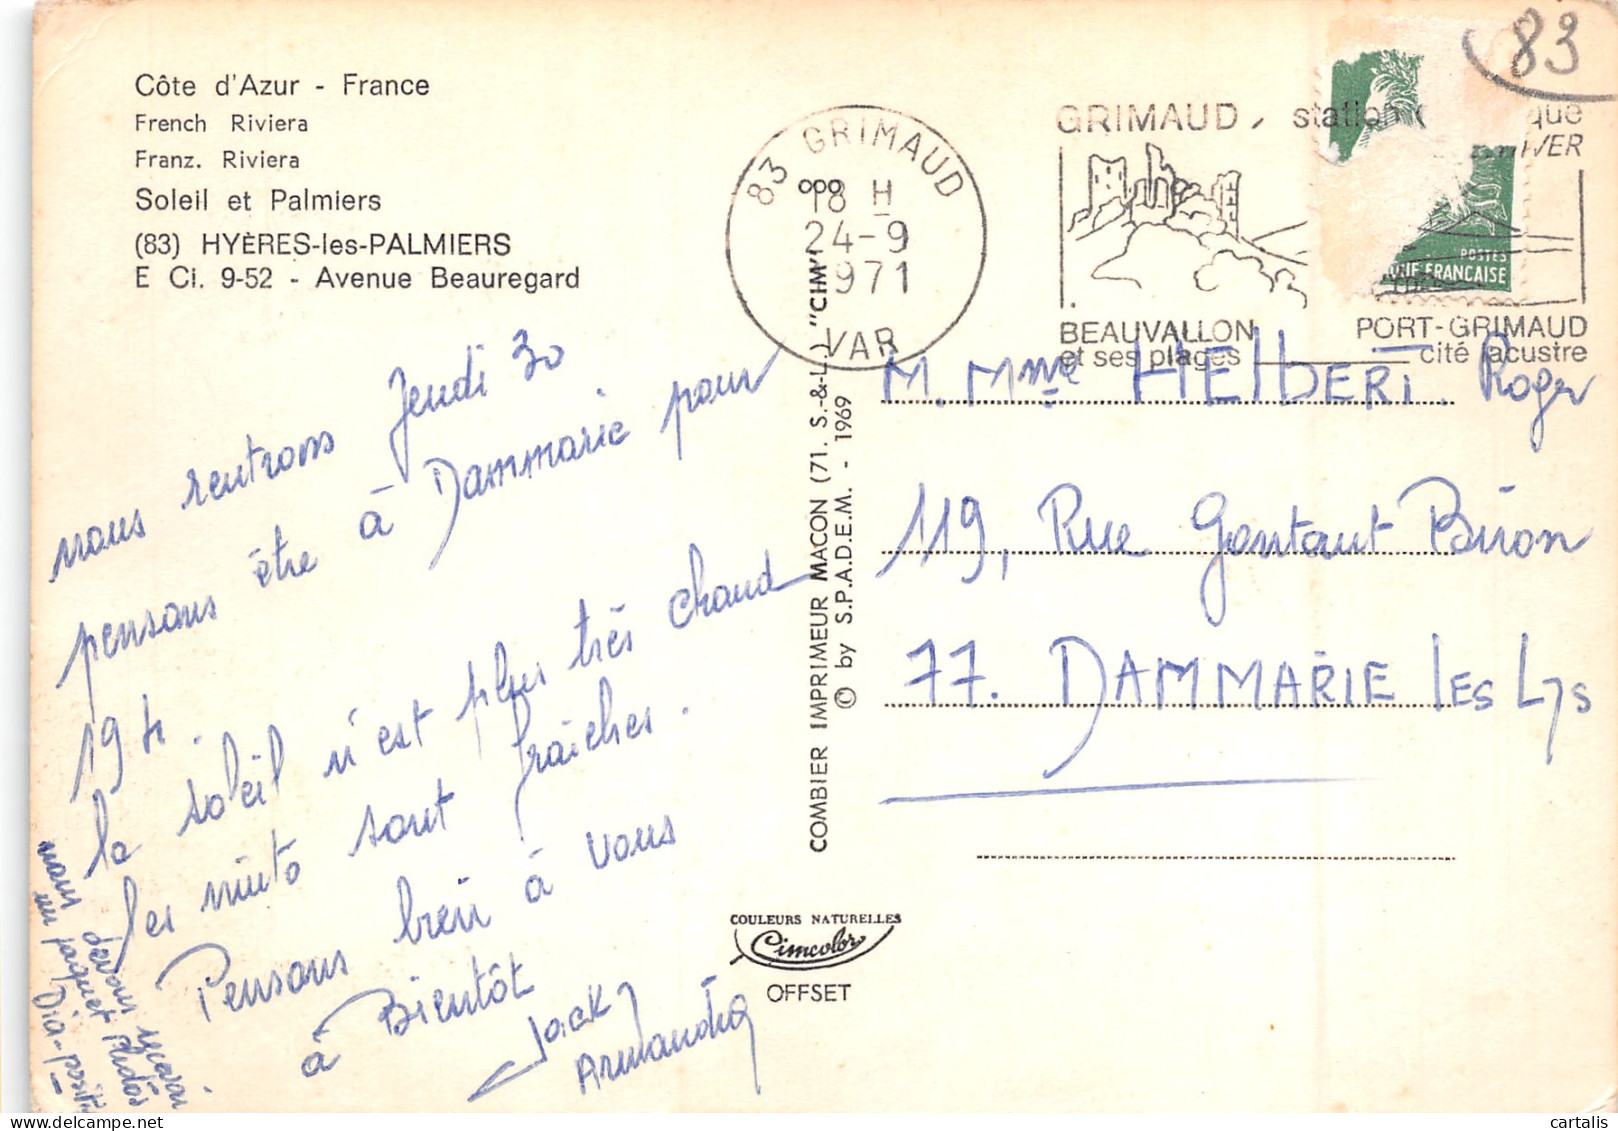 Côte d'Azur - France
French Riviera
Franz. Riviera
Soleil et Palmiers
(83) HYÈRES-les-PALMIERS
E Ci. 9-52 - Avenue Beauregard
83
83 GRIMAUD
18 H
24-9
1971
VAR
GRIMAUD, station
BEAUVALLON
et ses plages
PORT-GRIMAUD
cité lacustre
POSTES
QUE FRANCAISE
nous rentrons Jeudi 30
pensons être à Dammarie pour
19 h.
le soleil n'est plus très chaud
les nuits sont fraîches.
Pensons bien à vous
à Bientôt
Jack
nous devons
un paquet Photos
COMBIER IMPRIMEUR MACON (71. S.-&-L.) "CIM"
© by S.P.A.D.E.M. - 1969
COULEURS NATURELLES
Cimcolor
OFFSET
M. Mme HEIBERT. Roger
119, Rue Gontaut Biron
77. DAMMARIE les Lys
cartalis